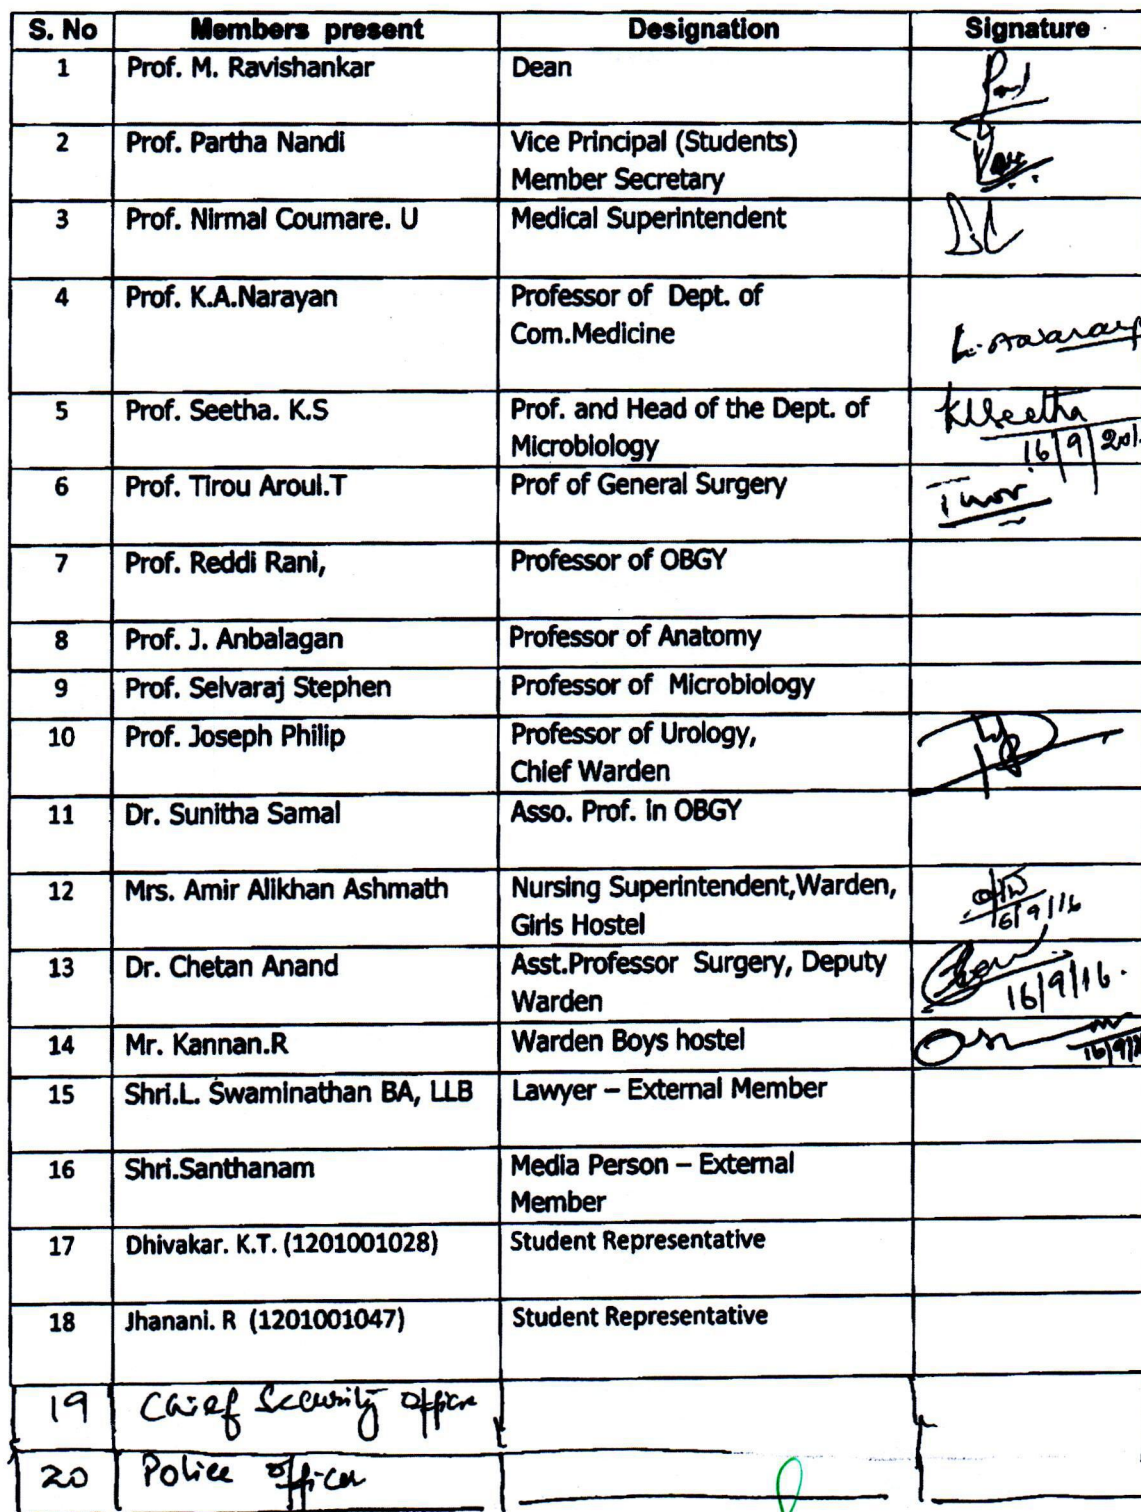 S. No Members present Designation Signature
1 Prof. M. Ravishankar Dean
2 Prof. Partha Nandi Vice Principal (Students)
Member Secretary
3 Prof. Nirmal Coumare. U Medical Superintendent
4 Prof. K.A.Narayan Professor of Dept. of
Com.Medicine
5 Prof. Seetha. K.S Prof. and Head of the Dept. of KSSeetha
Microbiology 16/9/201
6 Prof. Tirou Aroul.T Prof of General Surgery
7 Prof. Reddi Rani, Professor of OBGY
8 Prof. J. Anbalagan Professor of Anatomy
9 Prof. Selvaraj Stephen Professor of Microbiology
10 Prof. Joseph Philip Professor of Urology,
Chief Warden
11 Dr. Sunitha Samal Asso. Prof. in OBGY
12 Mrs. Amir Alikhan Ashmath Nursing Superintendent,Warden,
Girls Hostel 16/9/16
13 Dr. Chetan Anand Asst.Professor Surgery, Deputy
Warden 16/9/16.
14 Mr. Kannan.R Warden Boys hostel 16/9/
15 Shri.L. Swaminathan BA, LLB Lawyer – External Member
16 Shri.Santhanam Media Person – External
Member
17 Dhivakar. K.T. (1201001028) Student Representative
18 Jhanani. R (1201001047) Student Representative
19 Chief Security officer
20 Police officer